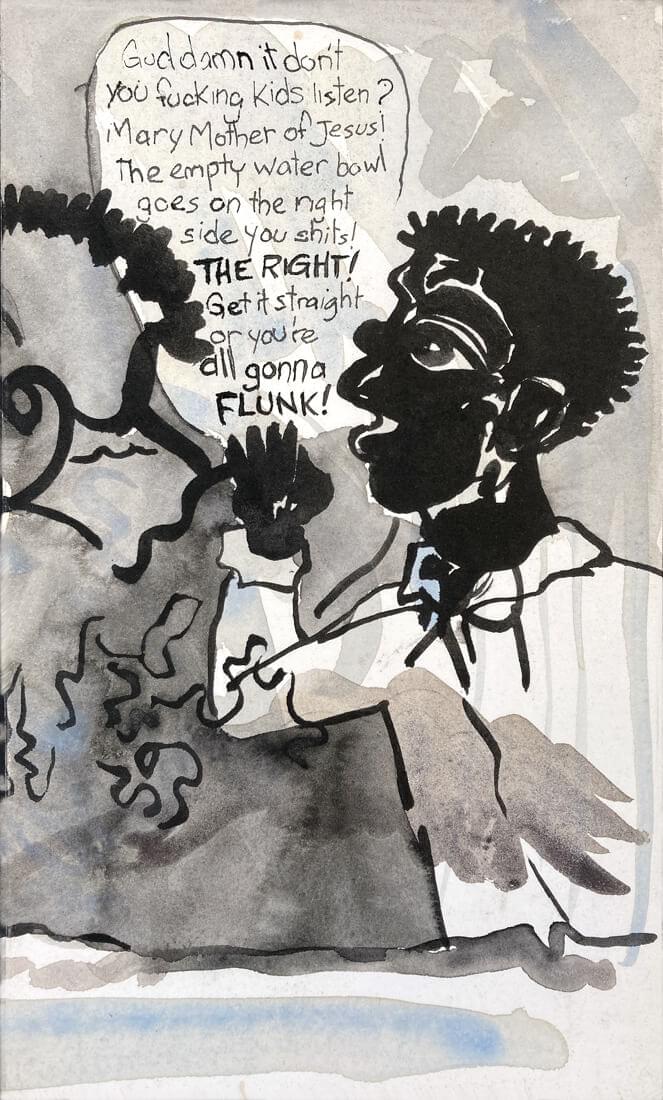 Gud damn it don't
you fucking kids listen?
Mary Mother of Jesus!
The empty water bowl
goes on the right
side you shits!
THE RIGHT!
Get it straight
or you're
all gonna
FLUNK!